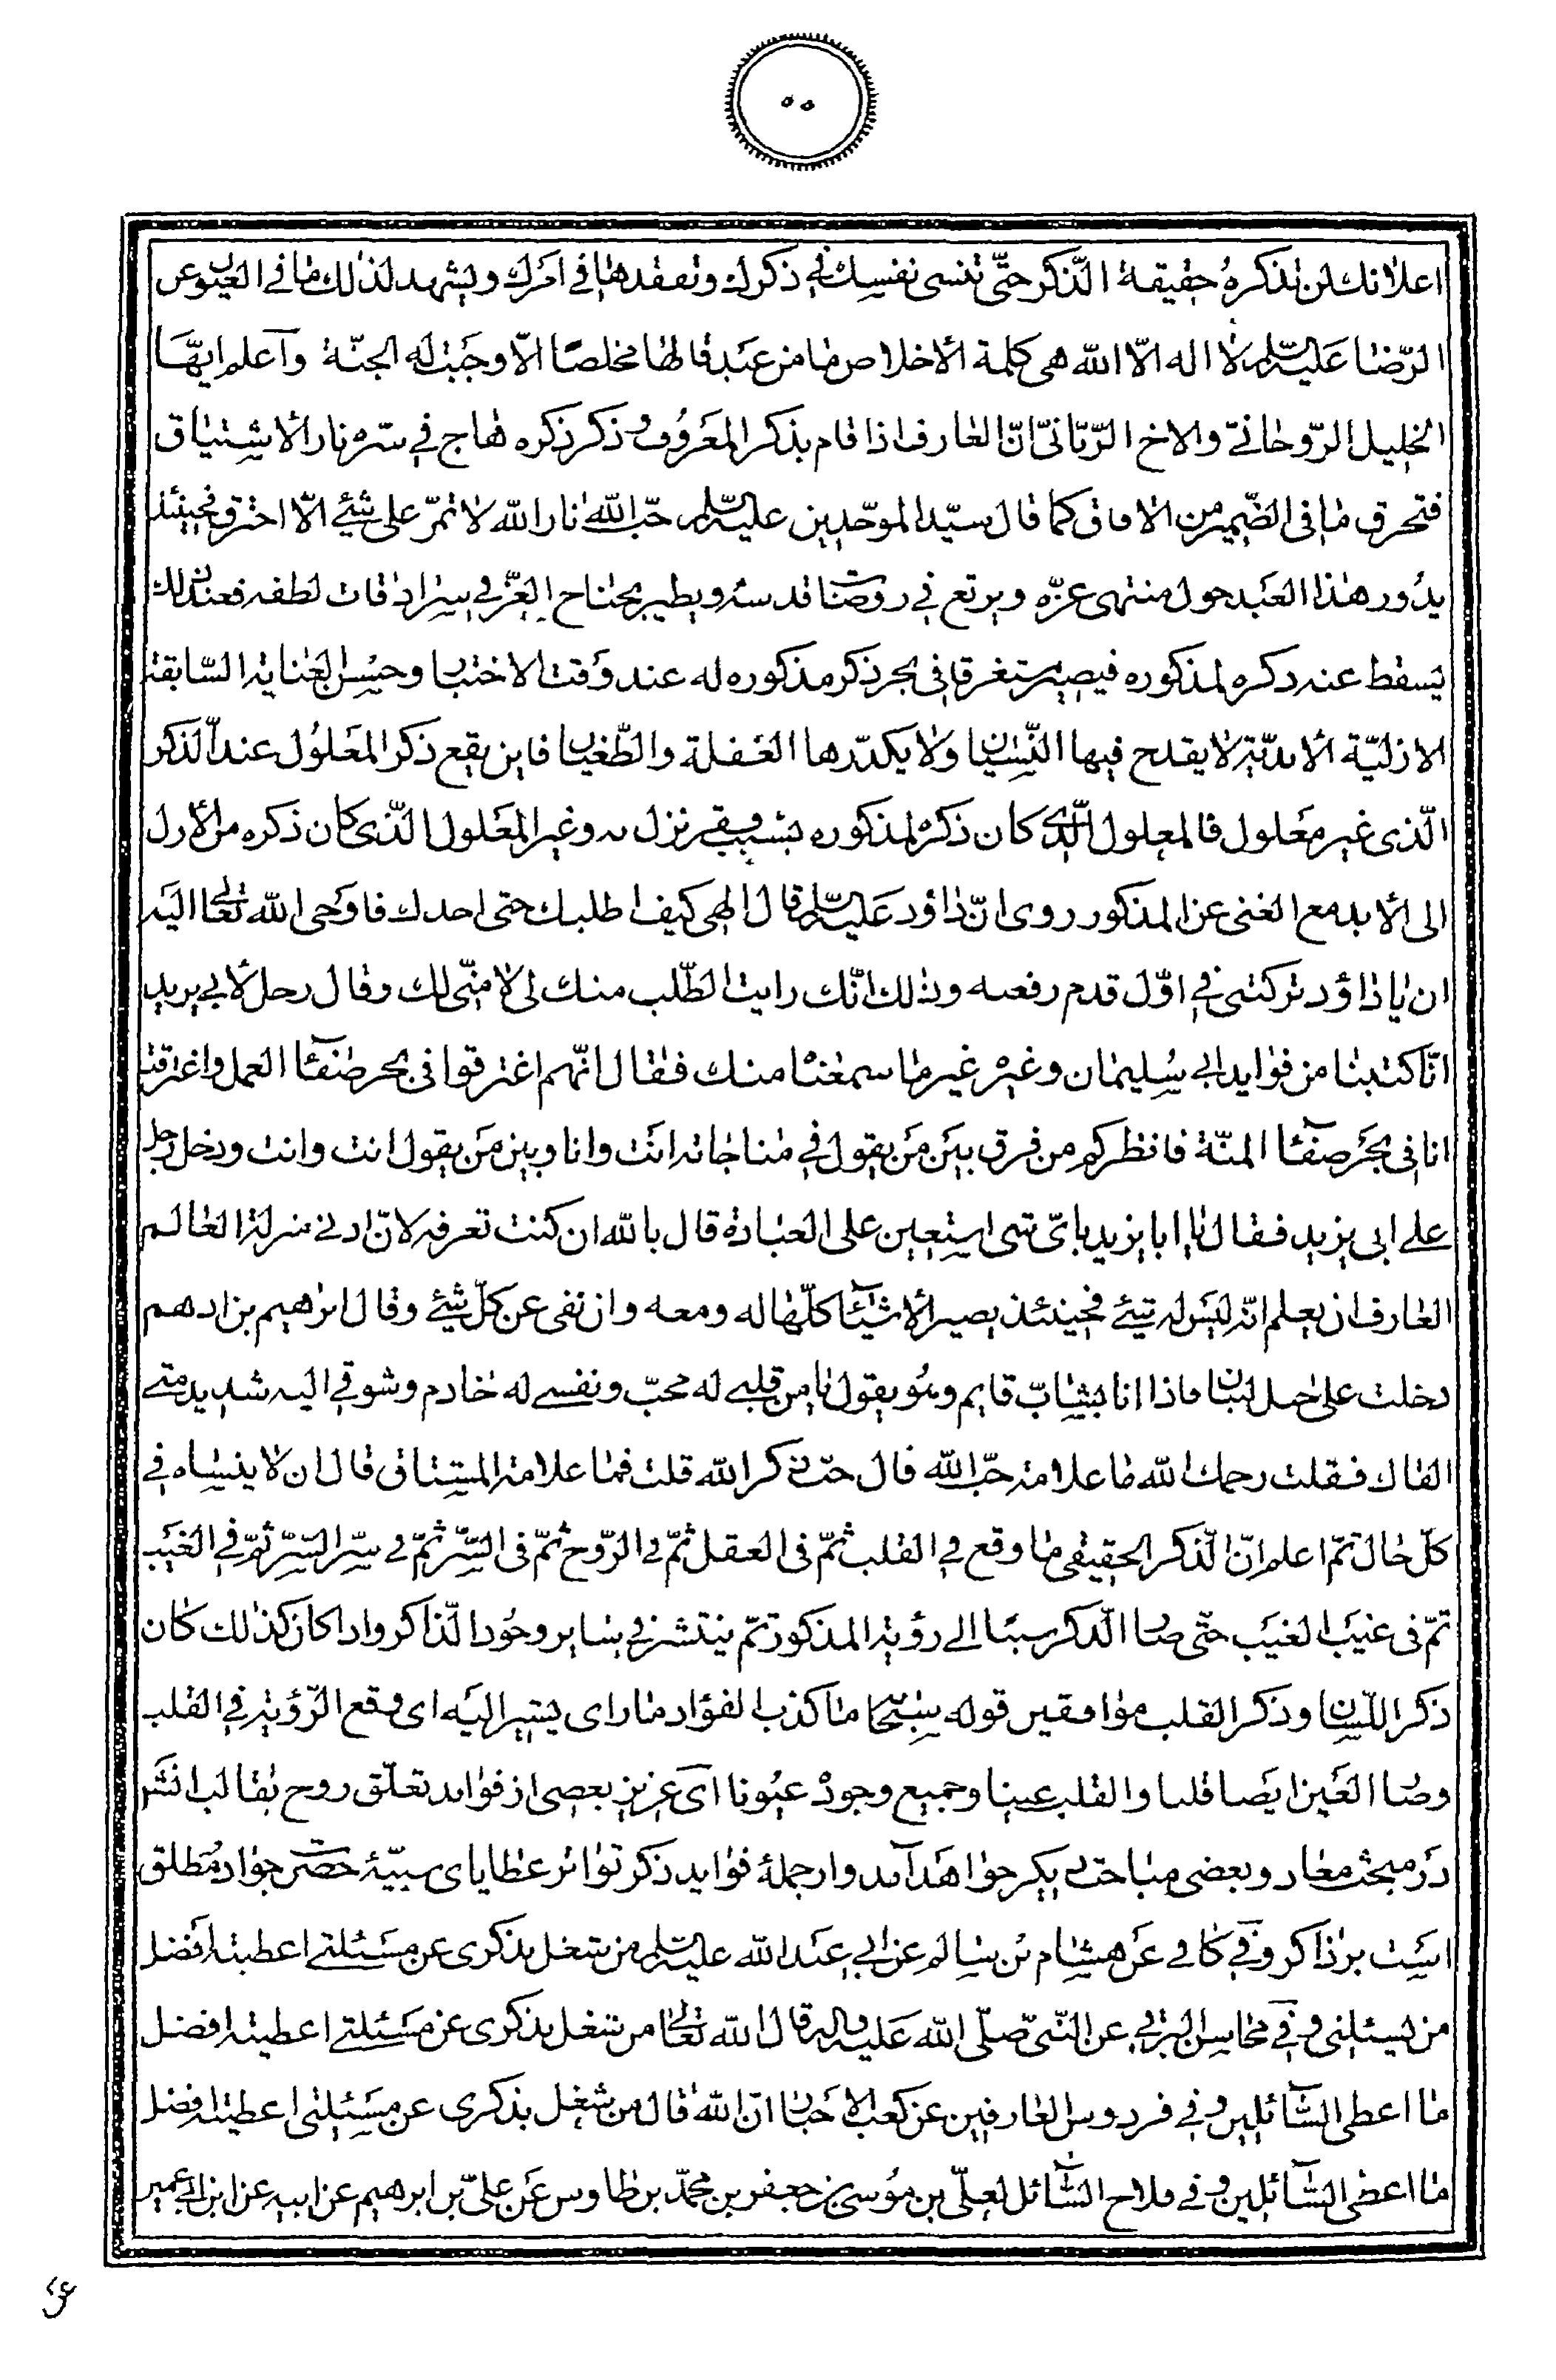 ٥٥
اعلا انك لن تذكره حقيقة الذّكر حتّى تنسى نفسك فى ذكرك وتفقدها فى امرك ويشهد لذلك ما فى العيون عن
الرّضا عليه السّلم لا اله الّا الله هى كلمة الاخلاص ما من عبد قالها مخلصًا الّا وجبت له الجنّة وآعلم ايّها
الخليل الرّوحانى والاخ الرّبّانىّ انّ العارف اذا قام بذكر المعروف و ذكر ذكره هاج فى سرّه نار الاشتياق
فتحرق ما فى الضّمير من الافاق كما قال سيّد الموحّدين عليه السّلم حبّ الله نار الله لا تمرّ على شئ الّا احترق فحينئذ
يدور هذا العبد حول منتهى عزّه ويرتع فى روضات قدسه ويطير بجناح العزّ فى سرادقات لطفه فعند ذلك
يسقط عنه ذكره لمذكوره فيصير مستغرقا فى بحر ذكر مذكوره له عند وقت الاختبار وحسن العناية السّابقة
الازليّة الابديّة لا يقدح فيها النّسيان ولا يكدّرها الغفلة والطّغيان فاين يقع ذكر المعلول عند الذكر
الّذى غير معلول فالمعلول الّذى كان ذكره لمذكوره بسبب فقر نزل به وغير المعلول الّذى كان ذكره من الازل
الى الابد مع الغنى عن المذكور روى انّ داود عليه السّلم قال الهى كيف اطلبك حتى اجدك فاوحى الله تعالى اليه
ان يا داؤد تركتنى فى اوّل قدم رفعته وذلك انّك رايت الطّلب منك لى لا منّى لك وقال رجل لابى يزيد
انّا كتبنا من فوايد ابى سليمان وغيره غير ما سمعنا منك فقال انّهم اغترقوا فى بحر صفآء العمل واغترقت
انا فى بحر صفآء المنّة فانظر كم من فرق بين من يقول فى مناجاته انت وانا وبين من يقول انت وانت ودخل رجل
على ابى يزيد فقال يا ابا يزيد باىّ شى استعين على العبادة قال بالله ان كنت تعرفه لانّ ادنى منزلة العالم
العارف ان يعلم انّه ليس له شئ فحينئذ يصير الاشيآء كلّها له ومعه وان نفى عن كلّ شئ وقال ابرهيم بن ادهم
دخلت على جبل لبنان فاذا انا بشابّ قايم وهو يقول يا من قلبى له محبّ ونفسى له خادم وشوقى اليه شديد متى
القاك فقلت رحمك الله ما علامة حبّ الله قال حبّ ذكر الله قلت فما علامة المشتاق قال ان لا ينساه فى
كلّ حال ثمّ اعلم انّ الذّكر الحقيقى ما وقع فى القلب ثمّ فى العقل ثمّ فى الرّوح ثمّ فى السّرّ ثمّ فى سرّ السّرّ ثمّ فى الغيب
ثمّ فى غيب الغيب حتّى صار الذّكر سببا الى رؤية المذكور ثمّ ينتشر فى ساير وجود الذّاكر واذا كان كذلك كان
ذكر اللسان وذكر القلب موافقين قوله سبحانه ما كذب الفؤاد ما راى يشير اليه اى وقع الرّؤية فى القلب
وصار العين ايضا قلبا والقلب عينا وجميع وجوده عيونا اى عزيز بعضى از فوايد تعلّق روح بقالب انشر
در مبحث معاد وبعضى مباحث ديگر خواهد آمد واز جملهٔ فوايد ذكر تواتر عطاياى سنيّهٔ حضرت جواد مطلق
است بر ذاكر وفى كافى عن هشام بن سالم عن ابى عبد الله عليه السّلم من شغل بذكرى عن مسئلتى اعطيته افضل
من يسئلنى وفى محاسن البرقى عن النّبىّ صلّى الله عليه واله قال الله تعالى من شغل بذكرى عن مسئلتى اعطيته افضل
ما اعطى السّائلين وفى فردوس العارفين عن كعب الاحبار انّ الله قال من شغل بذكرى عن مسئلتى اعطيته افضل
ما اعطى السّائلين وفى فلاح السّائل لعلىّ بن موسى بن جعفر بن محمّد بن طاوس عن علىّ بن ابرهيم عن ابيه عن ابن ابى عمير